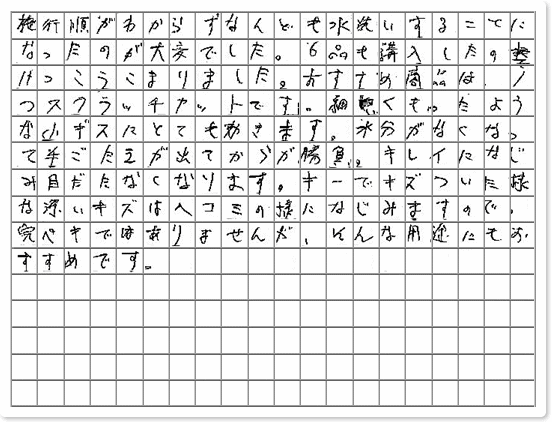 施行順がわからずなんども水洗いすることに
なったのが大変でした。6品も購入したの
けっこうこまりました。おすすめ商品は、1
つスクラッチカットです。細かくもったよう
な小キズにとても効きます。水分がなくなっ
て手ごたえが出てからが勝負。キレイになじ
み目だたなくなります。キーでキズついた様
な深いキズはヘコミの様になじみますので、
完ペキではありませんが、そんな用途にもお
すすめです。